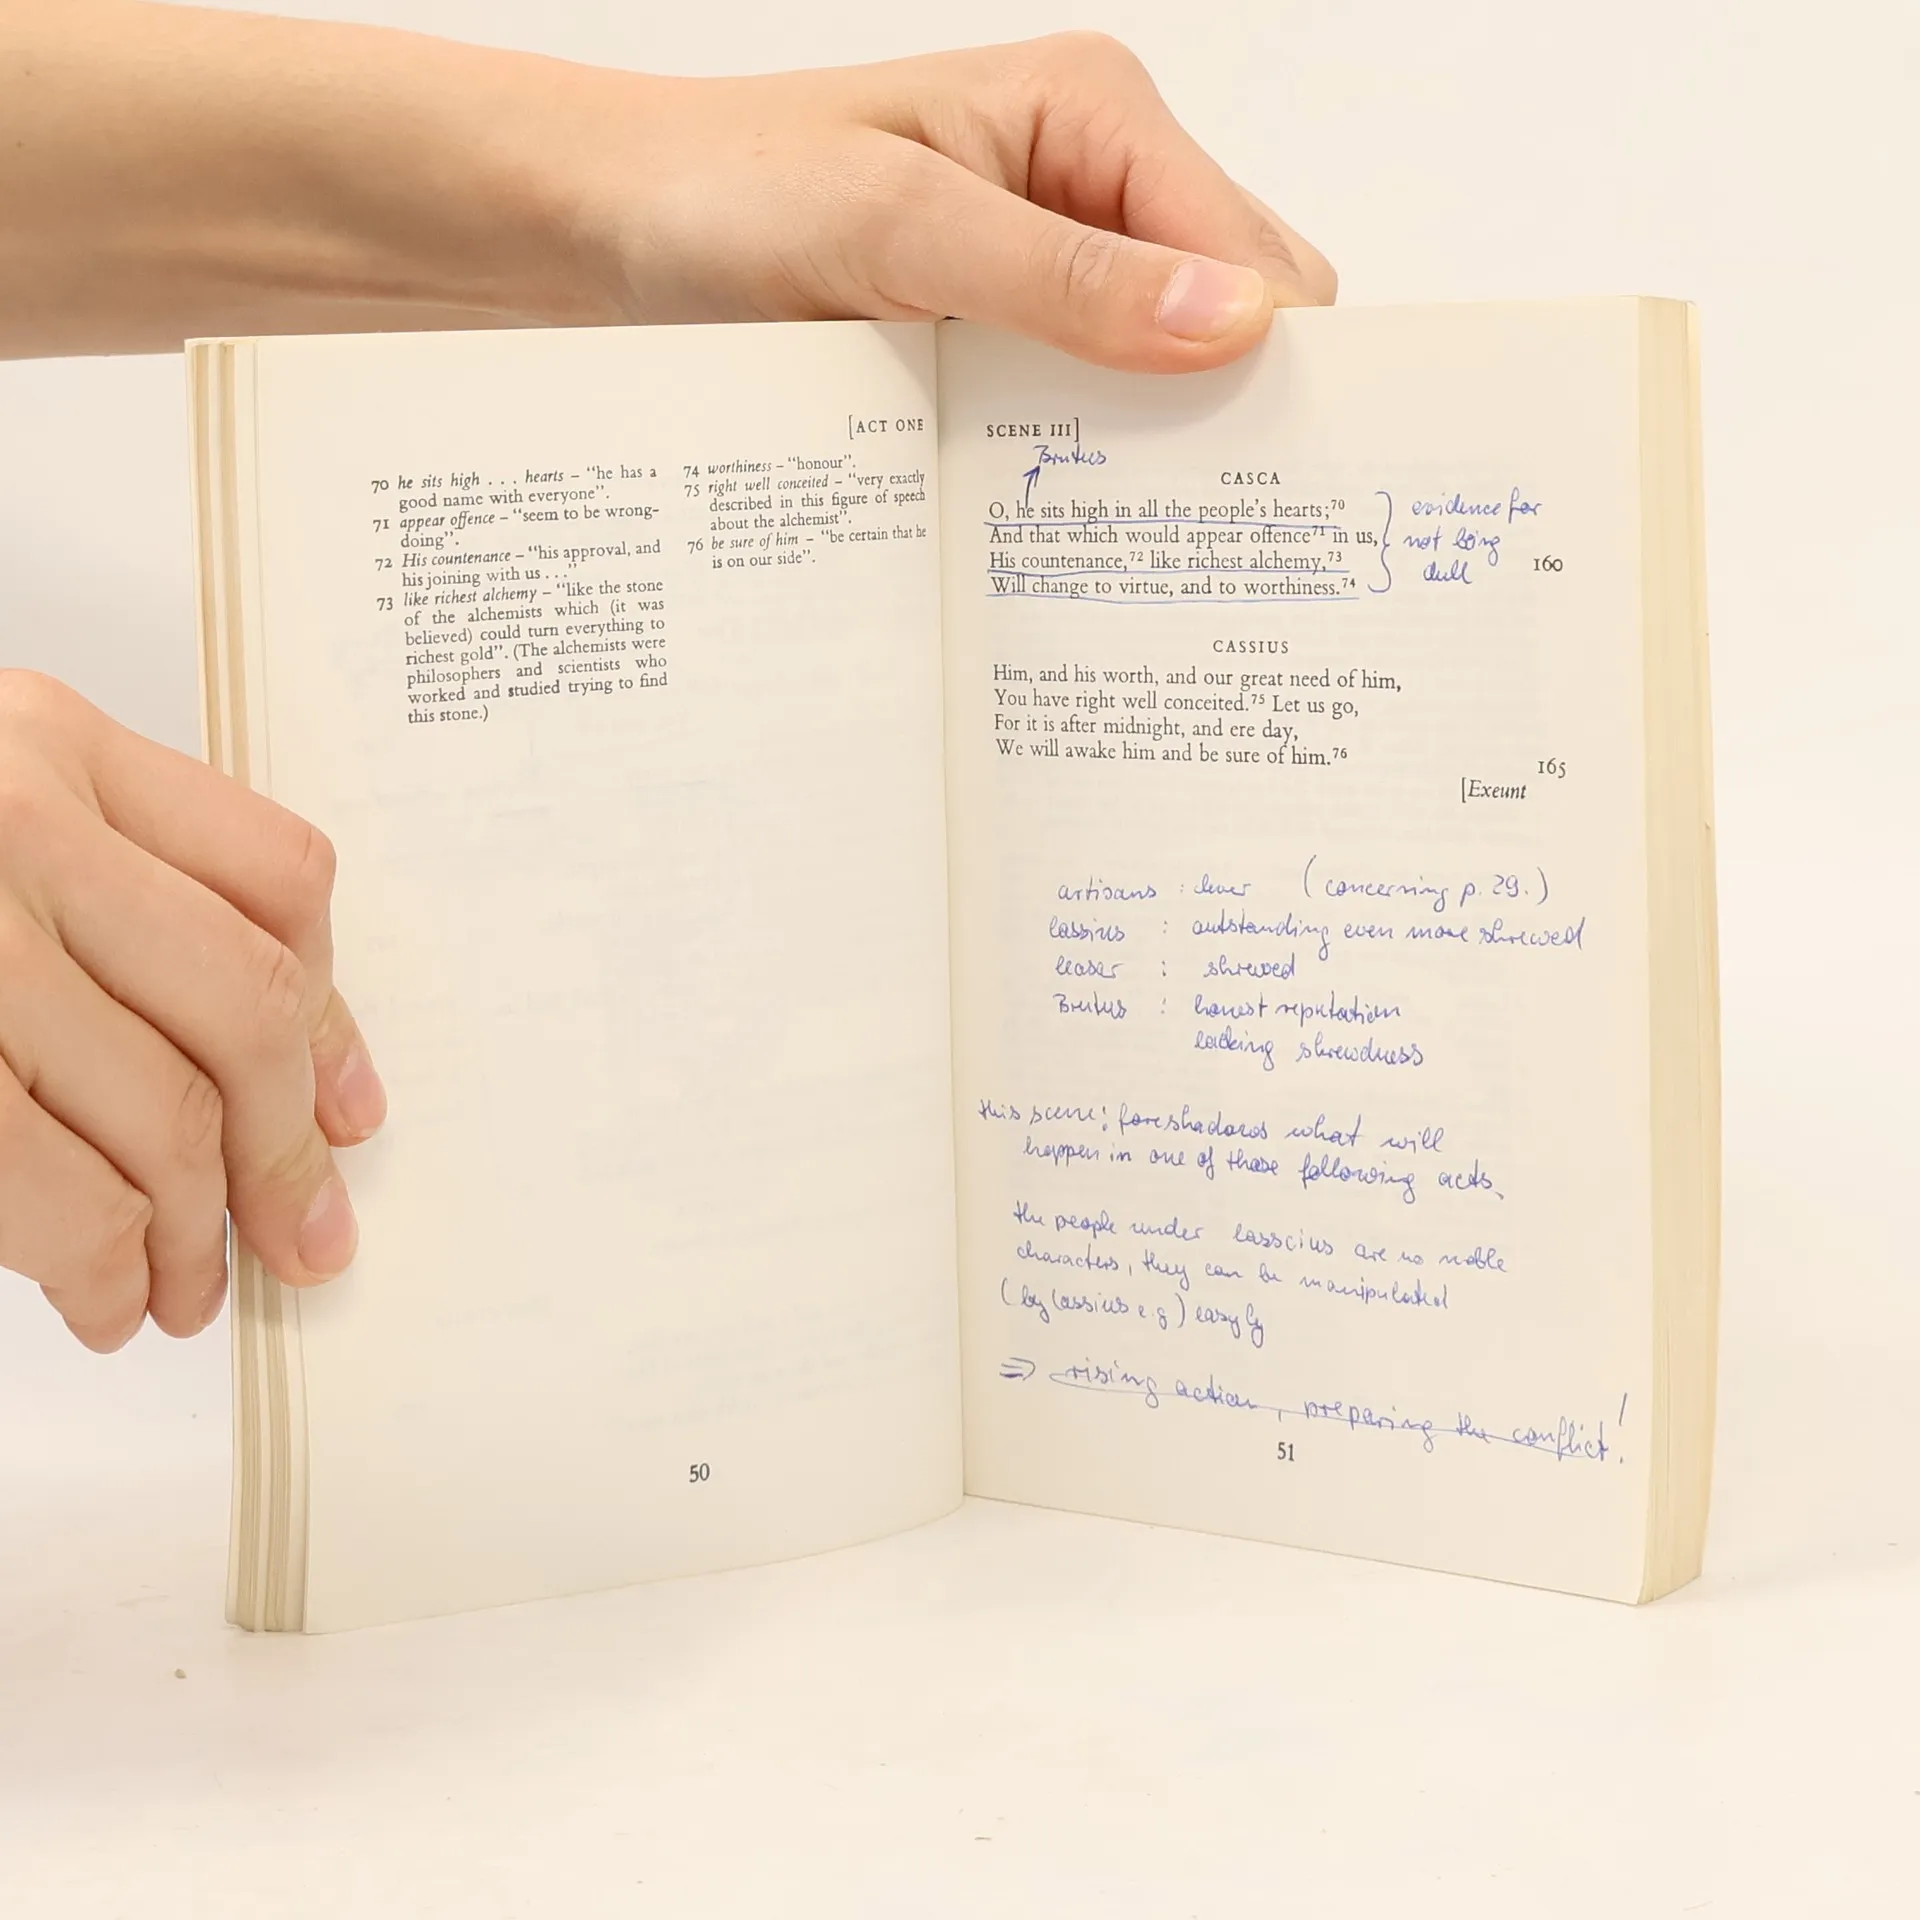 [ACT ONE
70 he sits high . . . hearts – “he has a
good name with everyone”.
71 appear offence – “seem to be wrong-
doing”.
72 His countenance – “his approval, and
his joining with us . . .”
73 like richest alchemy – “like the stone
of the alchemists which (it was
believed) could turn everything to
richest gold”. (The alchemists were
philosophers and scientists who
worked and studied trying to find
this stone.)
74 worthiness – “honour”.
75 right well conceited – “very exactly
described in this figure of speech
about the alchemist”.
76 be sure of him – “be certain that he
is on our side”.
50
SCENE III]
Brutus
CASCA
O, he sits high in all the people’s hearts;70
And that which would appear offence71 in us,
His countenance,72 like richest alchemy,73
160
Will change to virtue, and to worthiness.74
evidence for
not being
dull
CASSIUS
Him, and his worth, and our great need of him,
You have right well conceited.75 Let us go,
For it is after midnight, and ere day,
We will awake him and be sure of him.76
165
[Exeunt
artisans : clever (concerning p. 29.)
Cassius : outstanding even more shrewed
Ceasar : shrewed
Brutus : honest reputation
lacking shrewdness
this scene: foreshadows what will
happen in one of those following acts.
the people under Casscius are no noble
characters, they can be manipulated
(by Cassius e.g) easyly
⇒ rising action, preparing the conflict!
51